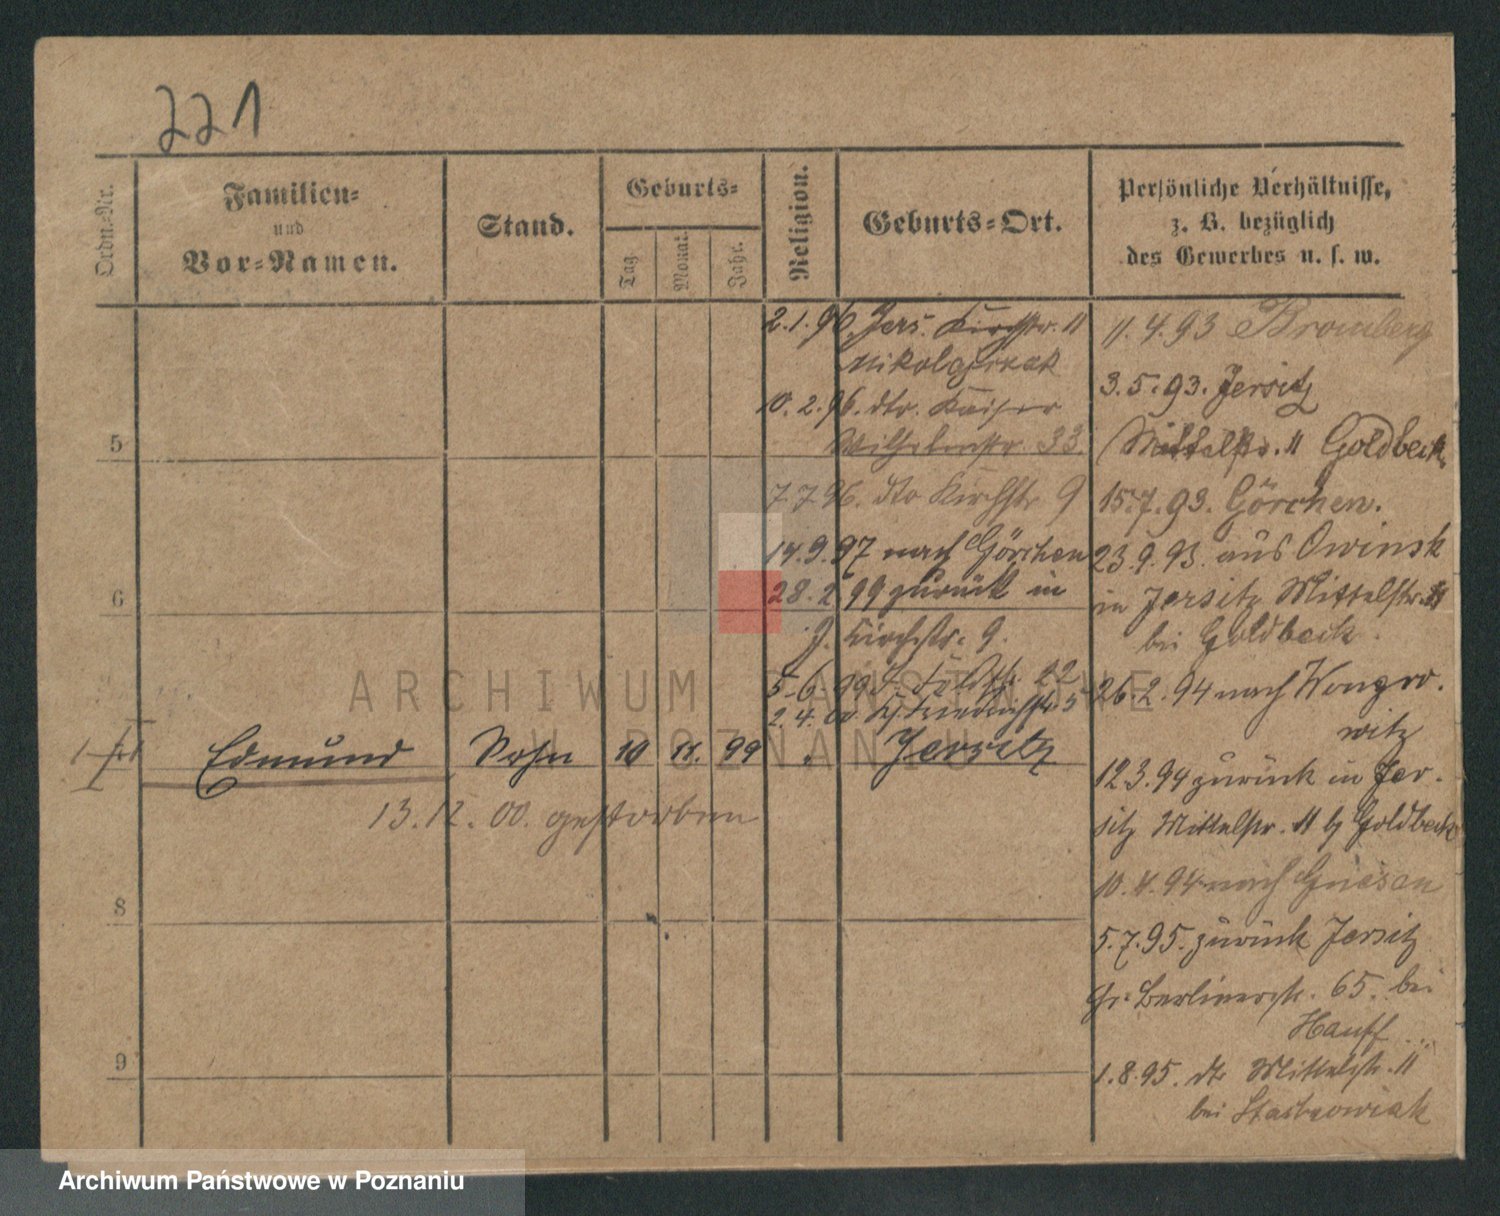 221
Ordn.-Nr.
Familien-
und
Vor-Namen.
Stand.
Geburts-
Tag.
Monat.
Jahr.
Religion.
Geburts-Ort.
Persönliche Verhältnisse,
z. B. bezüglich
des Gewerbes u. s. w.
2.1.96. Jers. Kirchstr. 11
10.2.96. dto. Kaiser
Wilhelmstr. 33.
7.7.96. dto Kirchstr 9
14.9.97 nach Görchen
28.2.99 zurück in
J. Kirchstr. 9.
5.6.99 J.
2.4.00.
5
6
8
9
Edmund Sohn 10 11. 99 Jersitz
13.12.00. gestorben
11.4.93 Bromberg
3.5.93. Jersitz
Mittelstr. 11 Goldbeck
15.7.93. Görchen.
23.9.93. aus Owinsk
in Jersitz Mittelstr. 11
bei Goldbeck.
26.2.94 nach Wongro-
witz
12.3.94 zurück in Jer-
sitz Mittelstr. 11 b/ Goldbeck
10.4.94 nach Gnesen
5.7.95. zurück Jersitz
Gr. Berlinerstr. 65. bei
Hauff
1.8.95. dto Mittelstr. 11
bei
ARCHIWUM PAŃSTWOWE
W POZNANIU
Archiwum Państwowe w Poznaniu